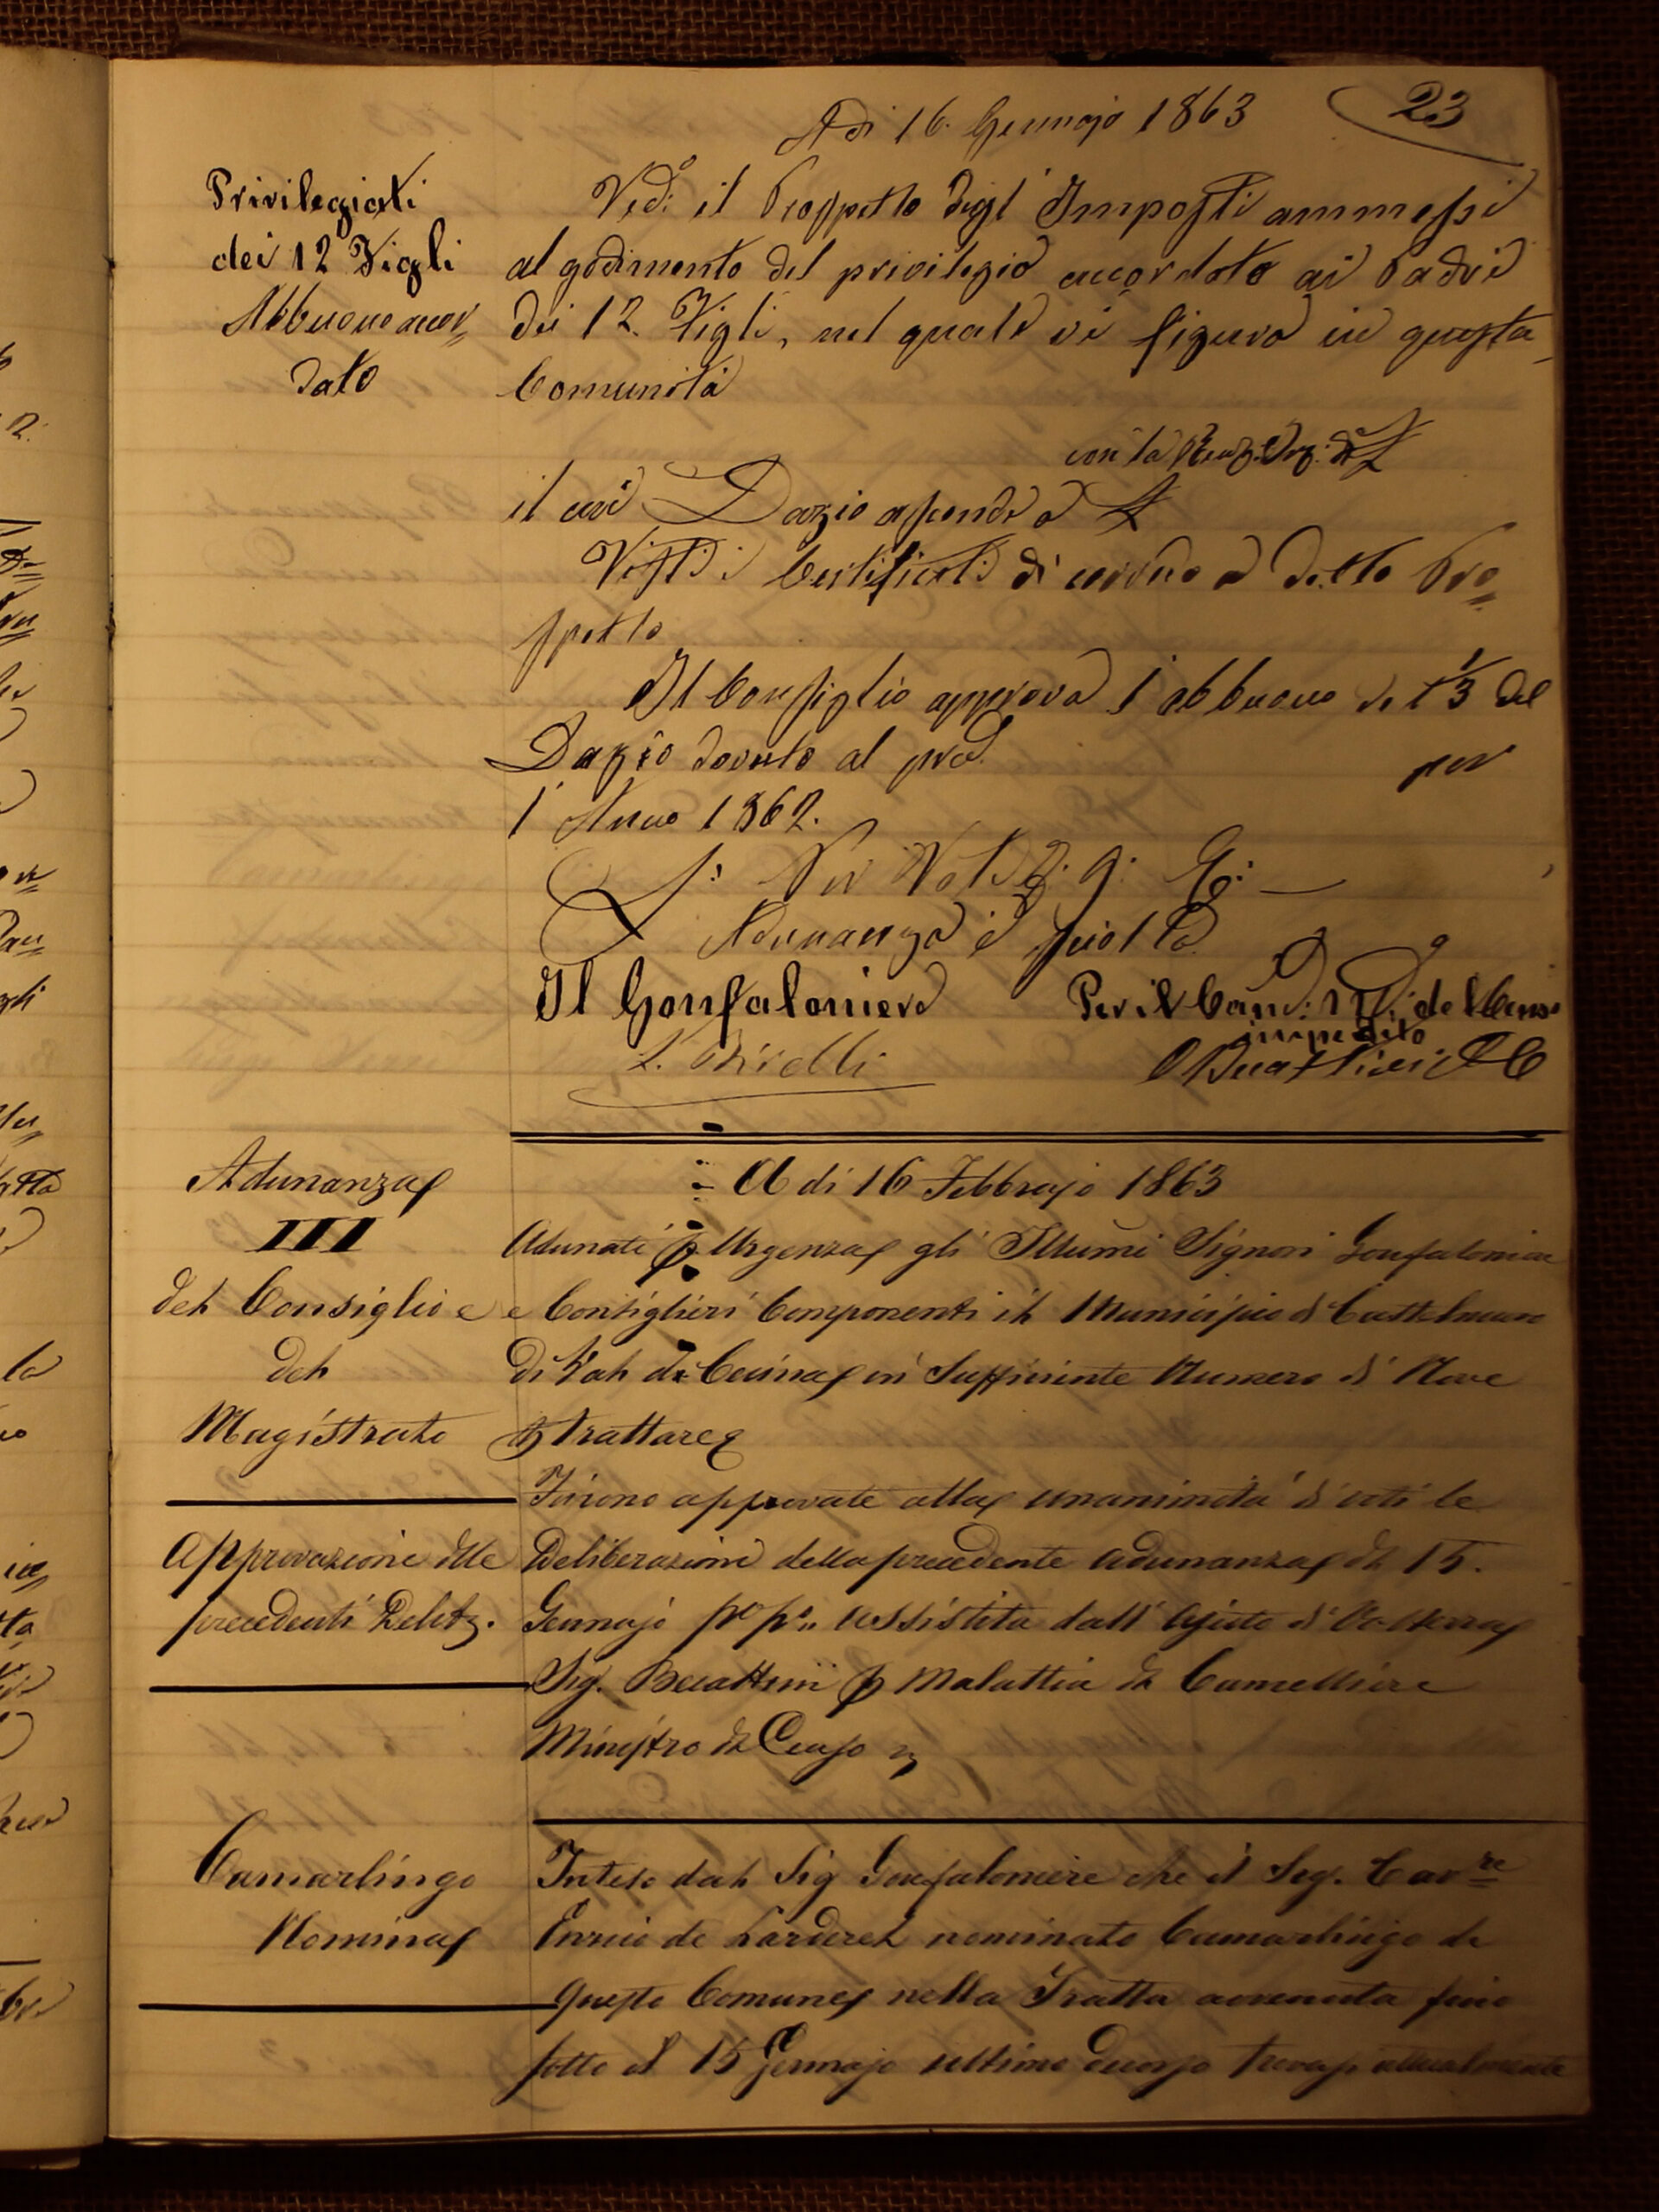 Adi 16. Gennajo 1863
23
Privilegiati
dei 12 Figli
Abbuono accor
dato
Ved.º il Prospetto degl' Imposti ammessi
al godimento del privilegio accordato ai Padri
dei 12. Figli, nel quale vi figura in questa
Comunità
con la
il cui Dazio ascende a L
Visti i Certificati di corredo a detto Pro
spetto
Il Consiglio approva l'abbuono di 1/3 del
Dazio dovuto al pred.
per
l'Anno 1862.
P: Per Voti
Adunanza è sciolta
Il Gonfaloniere
Per il Canc: del Censo
impedito
Adunanza
III
del Consiglio e
del
Magistrato
A di 16 Febbrajo 1863
Adunati p Urgenza gli Illumi Signori Gonfaloniere
e Consiglieri Componenti il Municipio di Castelnuovo
di Val di Cecina in Sufficiente Numero di Nove
p trattare
Approvazione delle
precedenti
Furono approvate alla unanimità di voti le
Deliberazioni della precedente adunanza del 15.
Gennajo assistita dall' Ajuto di Volterra
Sig. Becattini p Malattia del Cancelliere
Ministro del Censo
Camarlingo
Nomina
Inteso dal Sig Gonfaloniere che il Sig. Cavre
Enrico de Larderel nominato Camarlingo di
questo Comune nella Tratta avvenuta fino
sotto il 15 Gennajo ultimo decorso trovasi attualmente